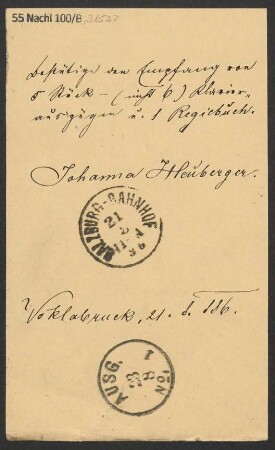 55 Nachl 100/B,
bestätige den Empfang von
5 Stück - (nicht 6) Klavier-
auszügen u. 1 Regiebuch.
Johanna Heuberger.
SALZBURG-BAHNHOF
21
8
Voklabruck, 21. 8. 886.
AUSG.
23
8